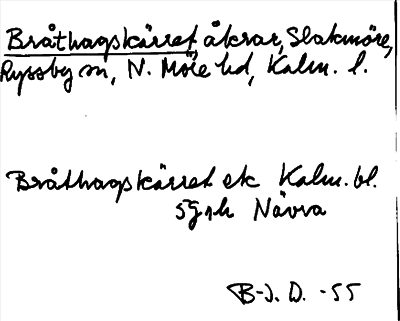 Bråthagskärret, åkrar, Slakmöre,
Ryssby sn, N. Möre hd, Kalm. l.
Bråthagskärret ek Kalm. bl.
5G1h Nävra
B-J. D. -55